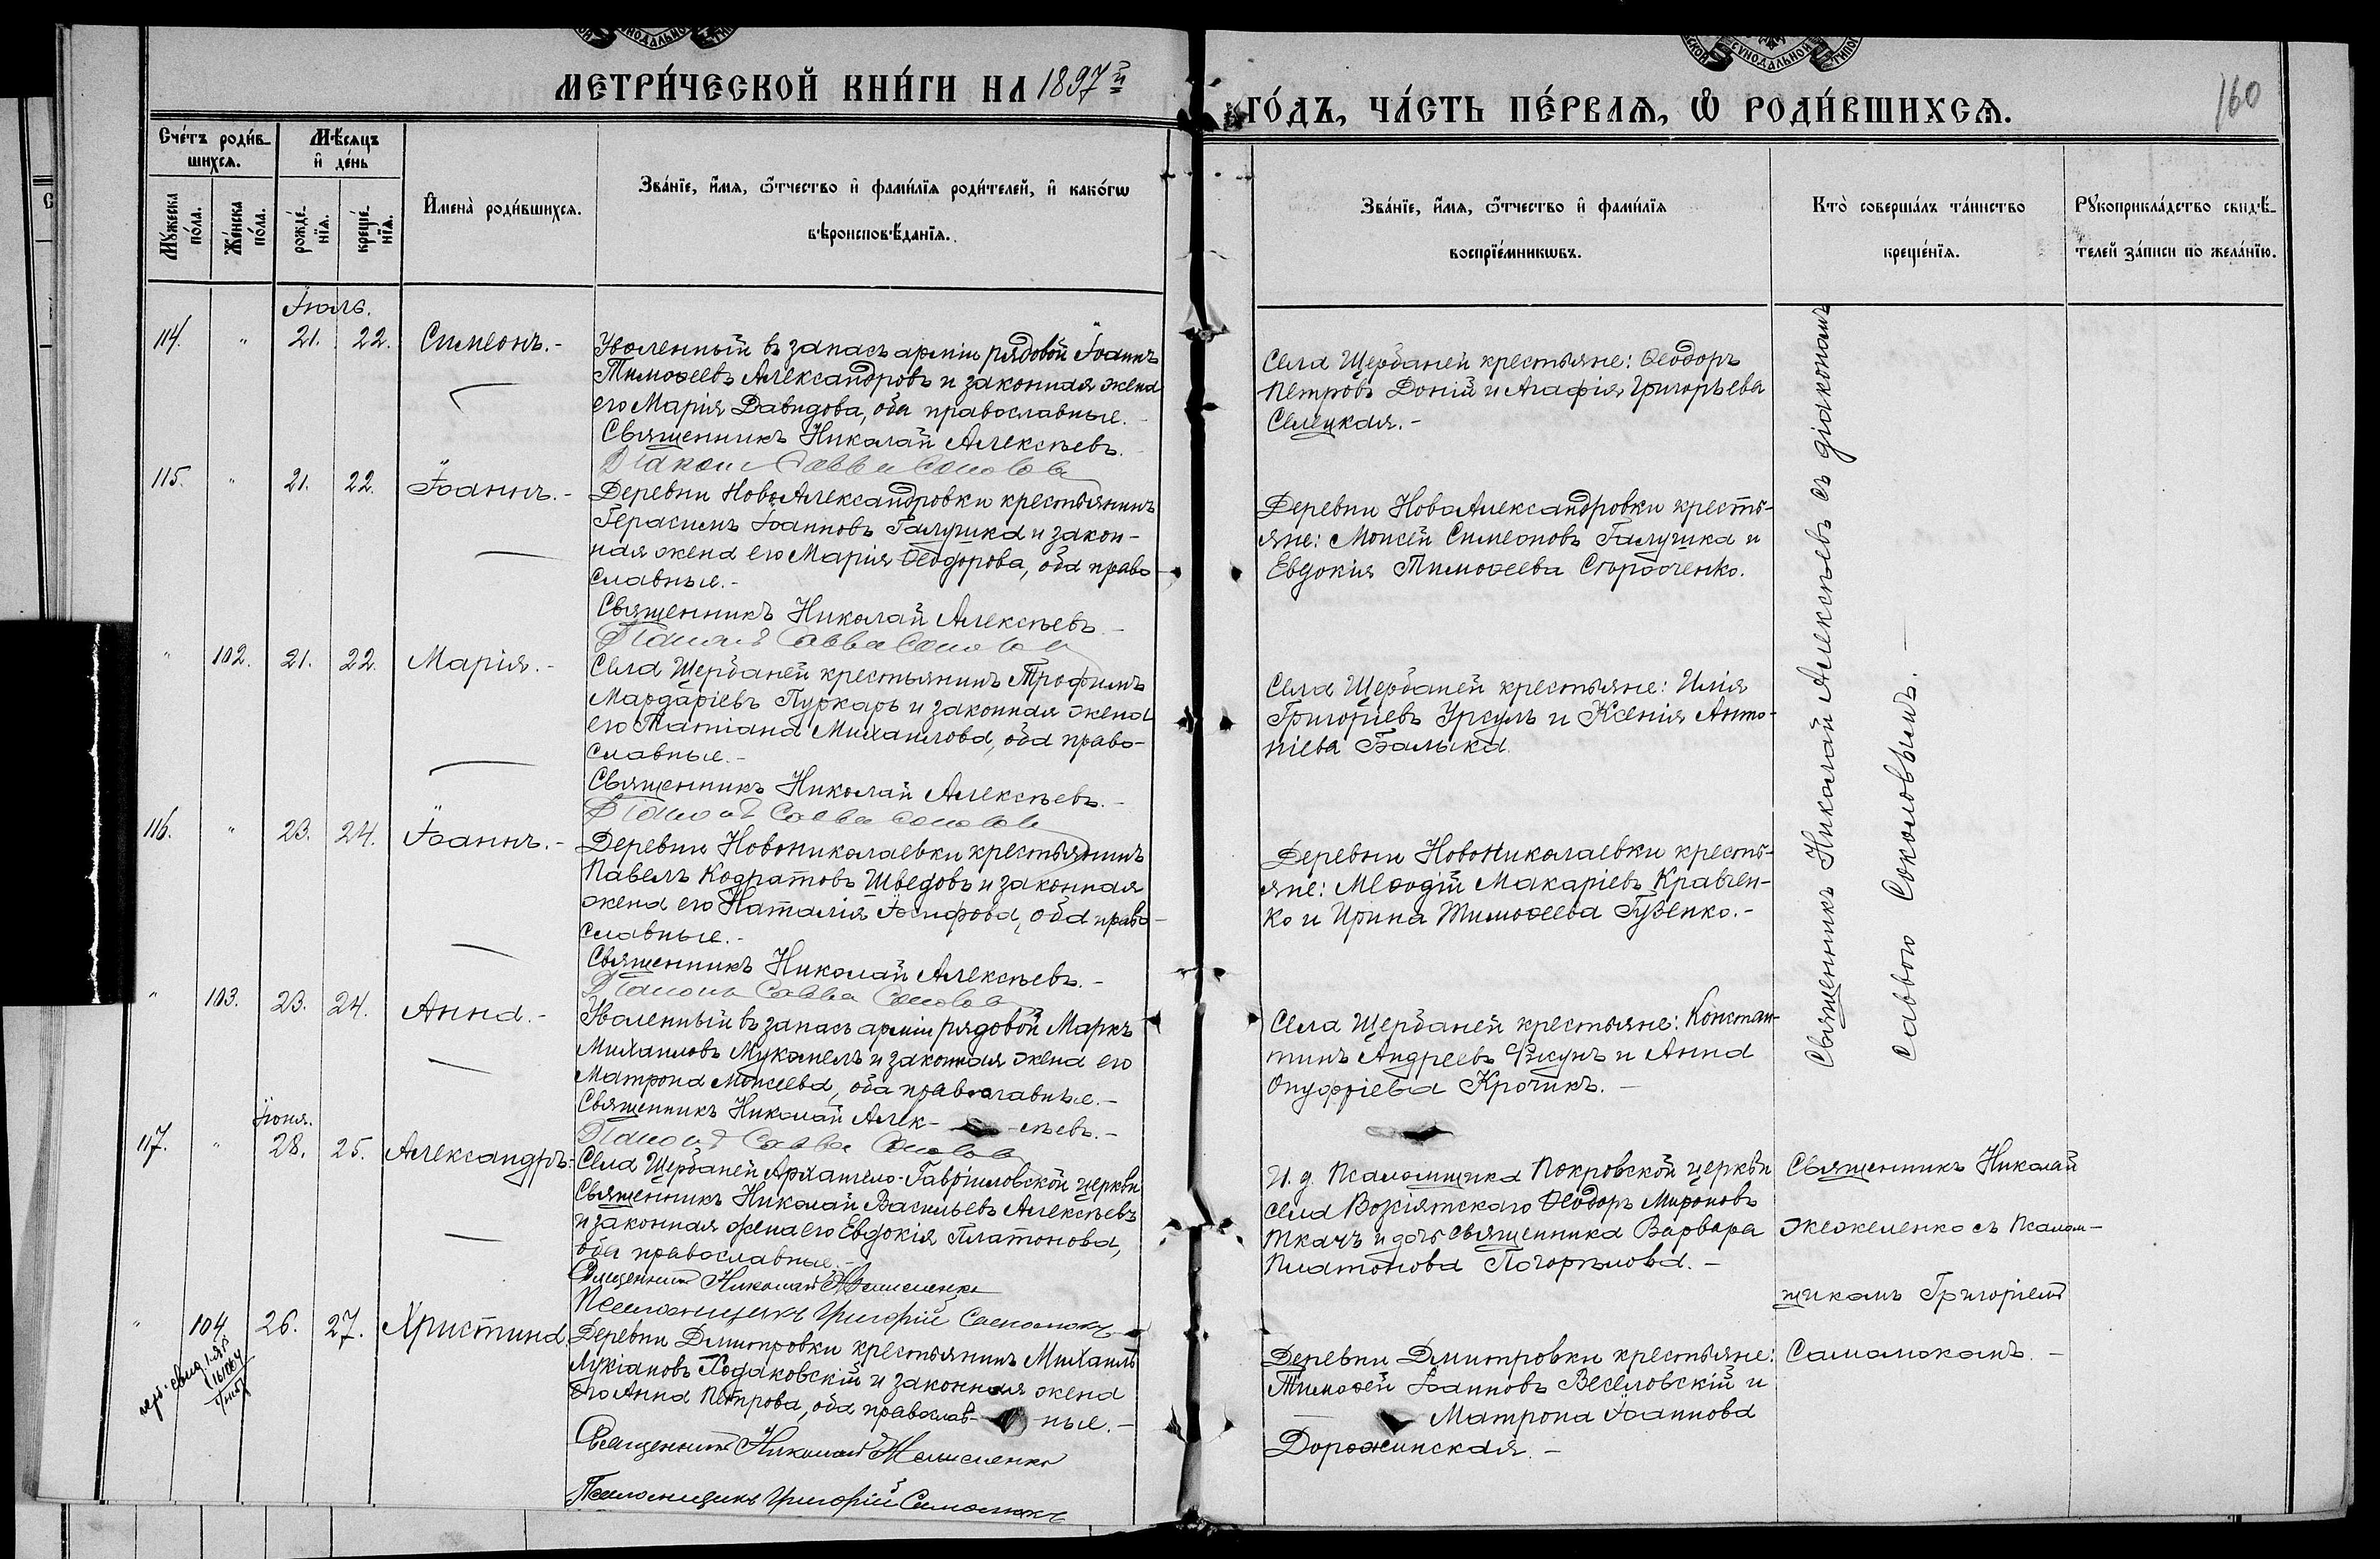 МЕТРИ́ЧЕСКОЙ КНИ́ГИ НА 1897й
ГО́ДЪ, ЧА́СТЬ ПЕ́РВАѦ, Ѽ РОДИ́ВШИХСѦ.
160
Сче́тъ роди́в-
шихсѧ.
Мѣсѧцъ
и҆ де́нь
Мꙋ́жеска
по́ла.
Же́нска
по́ла.
рожде́-
нїѧ.
креще́-
нїѧ.
И҆мена̀ роди́вшихсѧ.
Зва́нїе, и҆́мѧ, ѻ҆́тчество и҆ фами́лїѧ роди́телей, и҆ како́гѡ
вѣроисповѣ́данїѧ.
Зва́нїе, и҆́мѧ, ѻ҆́тчество и҆ фами́лїѧ
воспрїе́мникѡвъ.
Кто̀ соверша́лъ та́инство
креще́нїѧ.
Рꙋкоприкла́дство свидѣ́-
телей за́писи по жела́нїю.
Іюль.
114. " 21. 22. Симеонъ.-
Уволенный въ запасъ арміи рядовой Іоаннъ
Тимоѳеевъ Александровъ и законная жена
его Марія Давидова, оба православные.
Священникъ Николай Алексѣевъ.
Діаконъ Савва Соколовъ
Села Щербаней крестьяне: Ѳеодоръ
Петровъ Доній и Агафія Григорьева
Селецкая.-
115. " 21. 22. Іоаннъ.-
Деревни НовоАлександровки крестьянинъ
Герасимъ Іоанновъ Галушка и закон-
ная жена его Марія Ѳеодорова, оба право-
славные.-
Священникъ Николай Алексѣевъ.-
Діаконъ Савва Соколовъ
Деревни НовоАлександровки кресть-
яне: Моисей Симеоновъ Галушка и
Евдокія Тимоѳеева
" 102. 21. 22. Марія.-
Села Щербаней крестьянинъ Трофимъ
Мардаріевъ Пуркаръ и законная жена
его Татіана Михаилова, оба право-
славные.-
Священникъ Николай Алексѣевъ.-
Діаконъ Савва Соколовъ
Села Щербаней крестьяне: Илія
Григоріевъ Урсулъ и Ксенія Анто-
ніева Балыка.
116. " 23. 24. Іоаннъ.-
Деревни Новониколаевки крестьянинъ
Павелъ Кодратовъ Шведовъ и законная
жена его Наталія Іосифова, оба право-
славные.-
Священникъ Николай Алексѣевъ.-
Діаконъ Савва Соколовъ
Деревни НовоНиколаевки кресть-
яне: Меѳодій Макаріевъ Кравчен-
ко и Ирина Тимоѳеева Гузенко.-
" 103. 23. 24. Анна.-
Уволенный въ запасъ арміи рядовой Маркъ
Михаиловъ Муканелъ и законная жена его
Матрона Моисеева, оба православные.-
Священникъ Николай Алек- -сѣевъ.-
Діаконъ Савва Соколовъ
Села Щербаней крестьяне: Констан-
тинъ Андреевъ и Анна
Онуфріева Крочикъ.-
Священникъ Николай Алексѣевъ съ діакономъ
Саввою Соколовымъ.
Іюня.
117. " 28. 25. Александръ.
Села Щербаней Архангело-Гавріиловской церкви
Священникъ Николай Васильевъ Алексѣевъ
и законная жена его Евдокія Платонова,
оба православные.-
Священникъ Николай Жежеленко
Псаломщикъ Григорій Самолюкъ
И. д. Псаломщика Покровской церкви
села Возсіятскаго Ѳеодоръ Мироновъ
Ткачъ и дочь священника Варвара
Платонова Погорѣлова.-
Священникъ Николай
Жежеленко съ Псалом-
щикомъ Григоріемъ
Самолюкомъ.-
" 104. 26. 27. Христина.
Деревни Дмитровки крестьянинъ Михаилъ
Лукіановъ Годаковскій и законная жена
его Анна Петрова, оба православ- ные.-
Священникъ Николай Жежеленко
Псаломщикъ Григорій Самолюкъ
Деревни Дмитровки крестьяне:
Тимоѳей Іоанновъ Веселовскій и
Матрона Іоаннова
Дорожинская.-